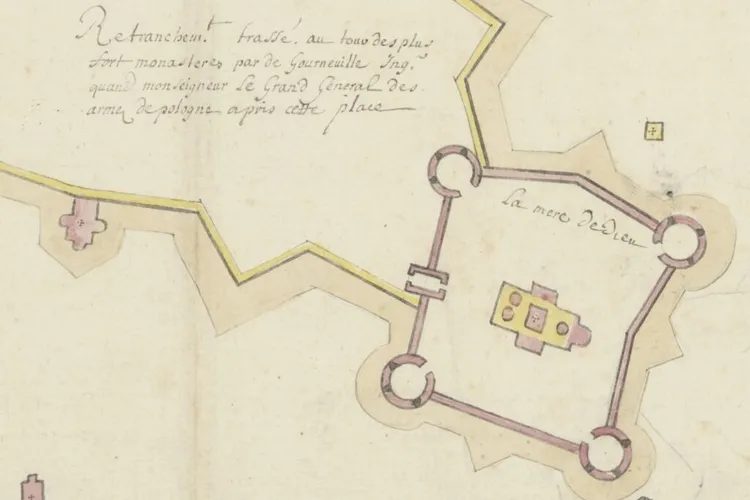 Retranchem.t trassé. au tour des plus
fort monasteres par de Gourneuille Ing.r
quand monseigneur Le Grand General des
armeẽ de pologne a pris cette place
La mere de Dieu